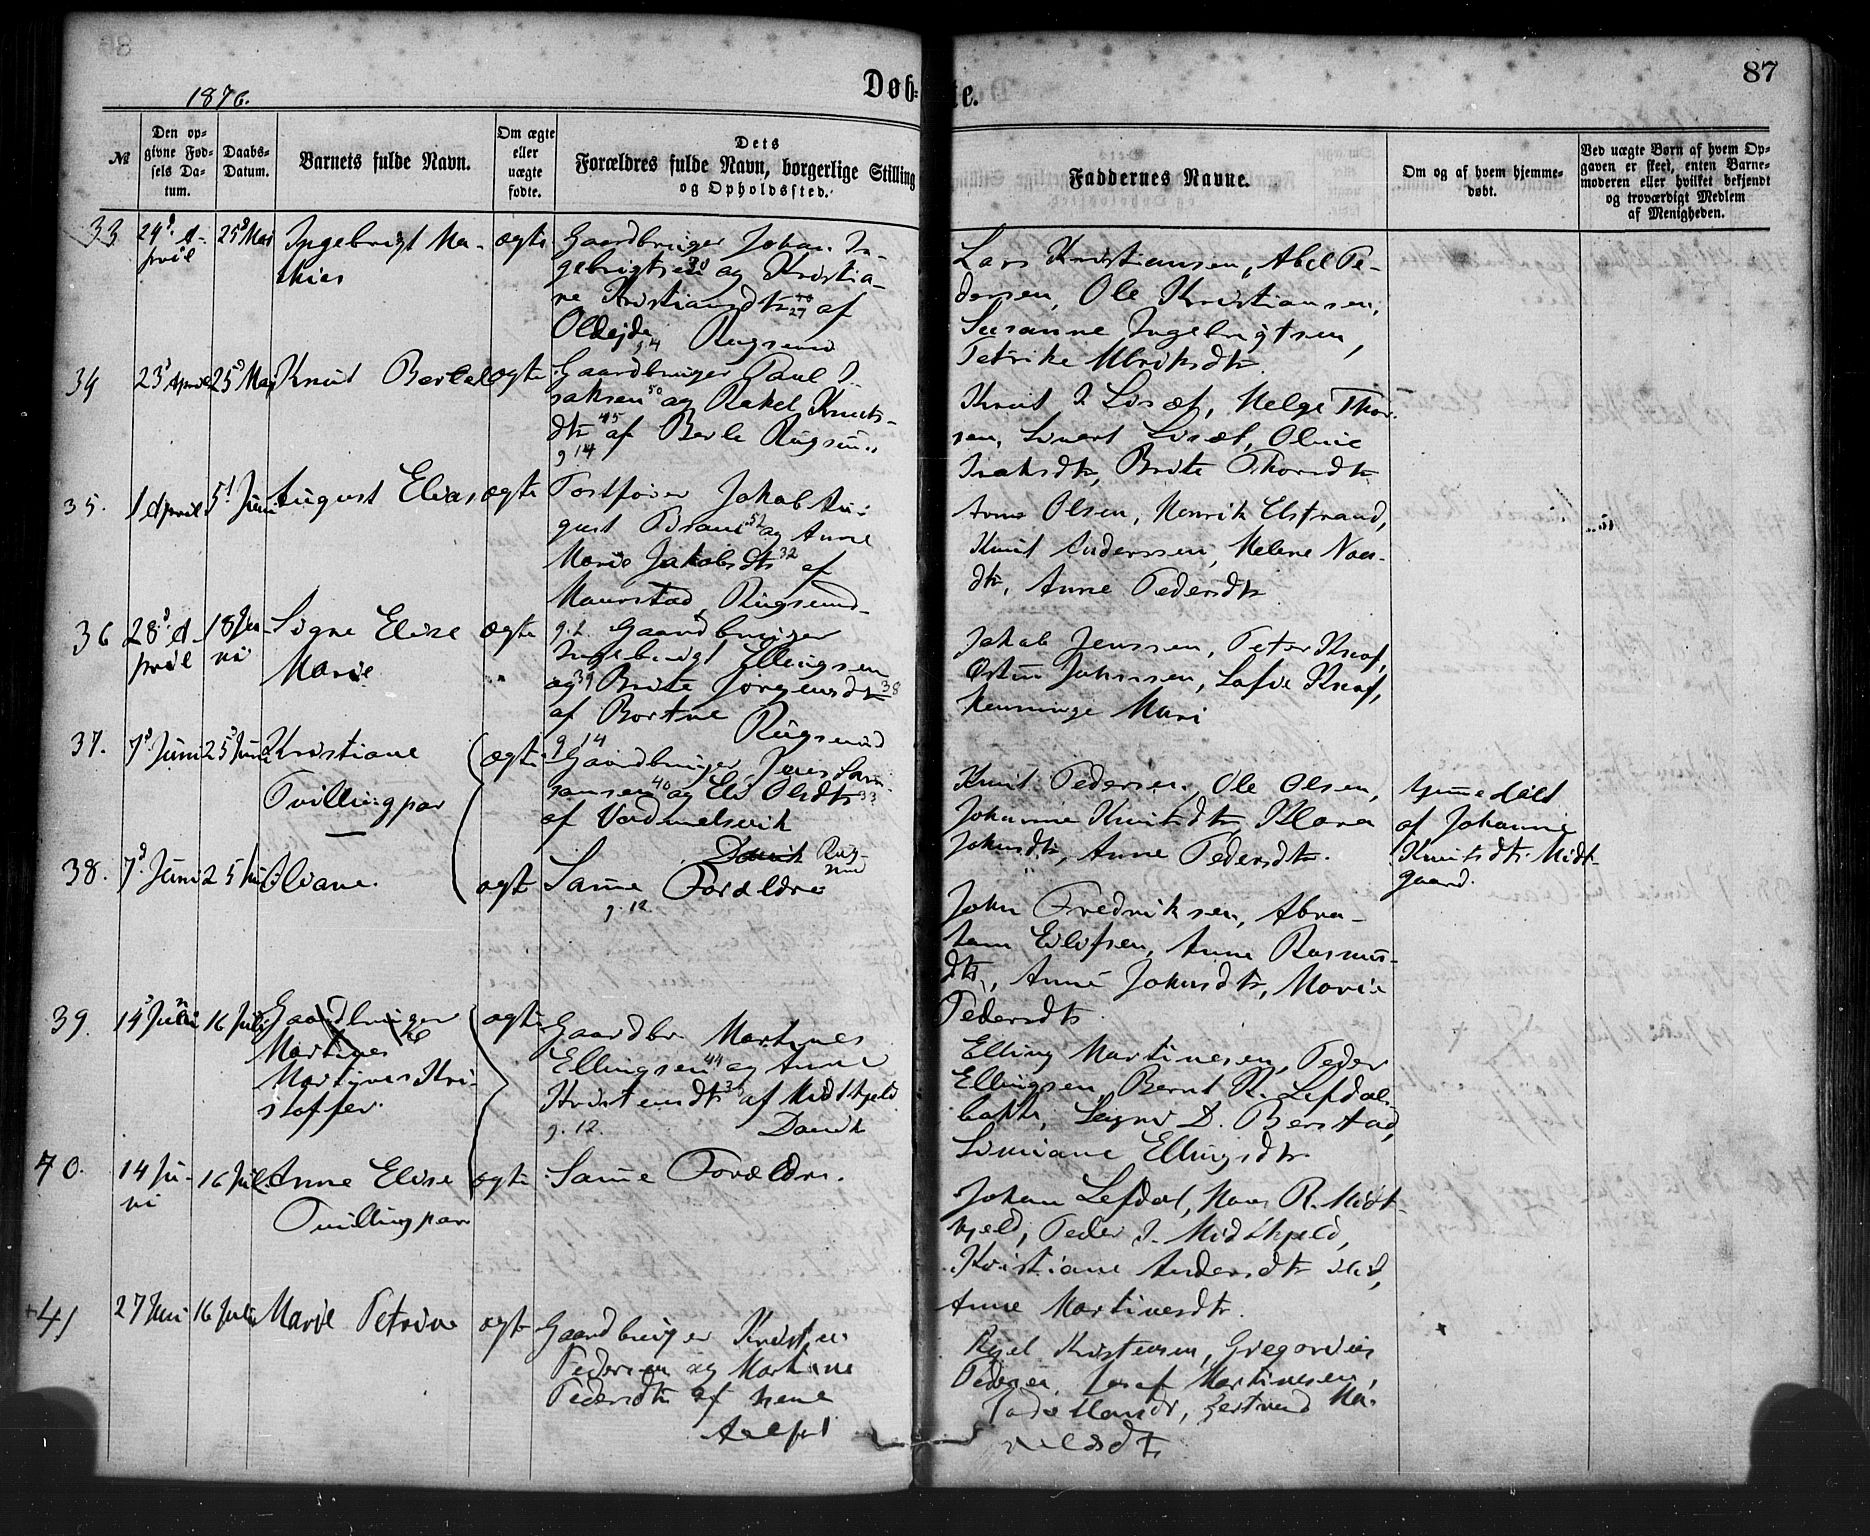 87
1876.
Døb-
te.
№
Den op-
givne Fød-
sels Da-
tum.
Daabs-
Datum.
Barnets fulde Navn.
Om ægte
eller
uægte
fødte.
Dets
Forældres fulde Navn, borgerlige Stilling
og Opholdssted.
Faddernes Navne.
Om og af hvem hjemme-
døbt.
Ved uægte Børn af hvem Op-
gaven er skeet, enten Barne-
moderen eller hvilket bekjendt
og troværdigt Medlem
af Menigheden.
33
24de A-
pril
25de Mai
Ingebrigt Ma-
thias
ægte
Gaardbruger Johan In-
gebrigtsen og Kristia-
ne Kristiansdtr af
Oldejde
Rugsund
Lars Kristiansen, Abel Pe-
dersen, Ole Kristiansen,
Susanne Ingebrigtsen,
Petrike Ulriksdtr.
34
23de April
25de Mai
Knut Bertel
ægte
Gaardbruger Paul I-
saksen 50 og Rakel Knuts-
dtr 45 af Berle Rugsund
g 14
Knut J. , Helge Thor-
sen, Sivert , Oline
Isaksdtr, Brite Thorsdtr
35.
1 April
5te Juni
August Elias
ægte
Postfører Jakob Au-
gust 52 og Anne
Marie Jakobsdtr 32 af
Maurstad, Rugsund
g. 2.
Arne Olsen, Henrik Elstrand,
Knut Anderssen, Helene
dtr, Anne Pedersdtr
36
28de A-
pril
18 Ju-
ni
Signe Elise
Marie
ægte
Gaardbruger
Ingebrigt Ellingsen
39 og Brite Jørgensdtr 38
af Bortne
Rugsund
g 14
Jakob Jenssen, Peter Knof,
Østen Johnssen, Lovise Knof,
Henninge Mari
37.
7de Juni
25de Juni
Kristiane
Tvillingpar
ægte
Gaardbruger Jens
40 og Eli Olsdtr 33
af Vadmelsvik
Davik Rug-
sund
Knut Pedersen, Ole Olsen,
Johanne Knutsdtr, Klara
Johnsdtr, Anne Pedersdtr.
hjemmedøbt
af Johanne
Knutsdtr Midt-
gaard.
38.
7de Juni
25 Juni
Oliane.
ægte
Same Forældre
g. 12.
John Fredriksen, Abra-
ham Eilifsen, Anne Rasmus-
dtr, Anne Johnsdtr, Marie
Pedersdtr
39.
14de Juni
16 Juli
Gaardbruger
Martines
Martines Kri-
stoffer.
ægte
Gaardbr. Martines
Ellingsen 44 og Anne
Kristensdtr af Midthjeld
g. 12.
Davik
Elling Martinesen, Peder
Ellingsen, Bernt R. Lefdal-
bakke, D. Berstad,
Simiane Ellingsdtr
40.
14 Ju-
ni
16 Juli
Anne Elise
Tvillingpar
ægte
Same Forældre.
Johan Lefdal, Hans R. Midt-
hjeld, Peder J. Midthjeld,
Kristiane Andersdtr ibid,
Anne Martinesdtr.
+41
27 Juni
16 Juli
Marie Petrine
ægte
Gaardbruger Kristen
Pedersen og Martine
Pedersdtr af
Aalfot
Kristensen, Gregorius
Pedersen, Josef Martinesen,
Hansdr, Gertrud Ha-